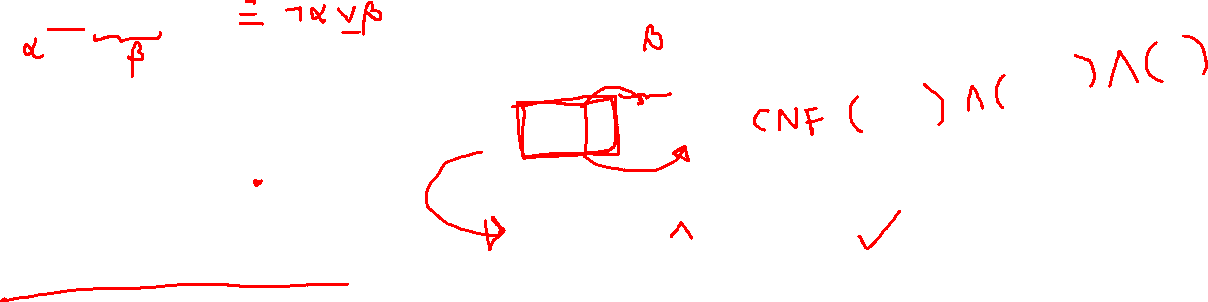 ≡ ¬α ∨ β
α
β
β
CNF ( ) ∧ ( ) ∧ ( )
∧ ✓